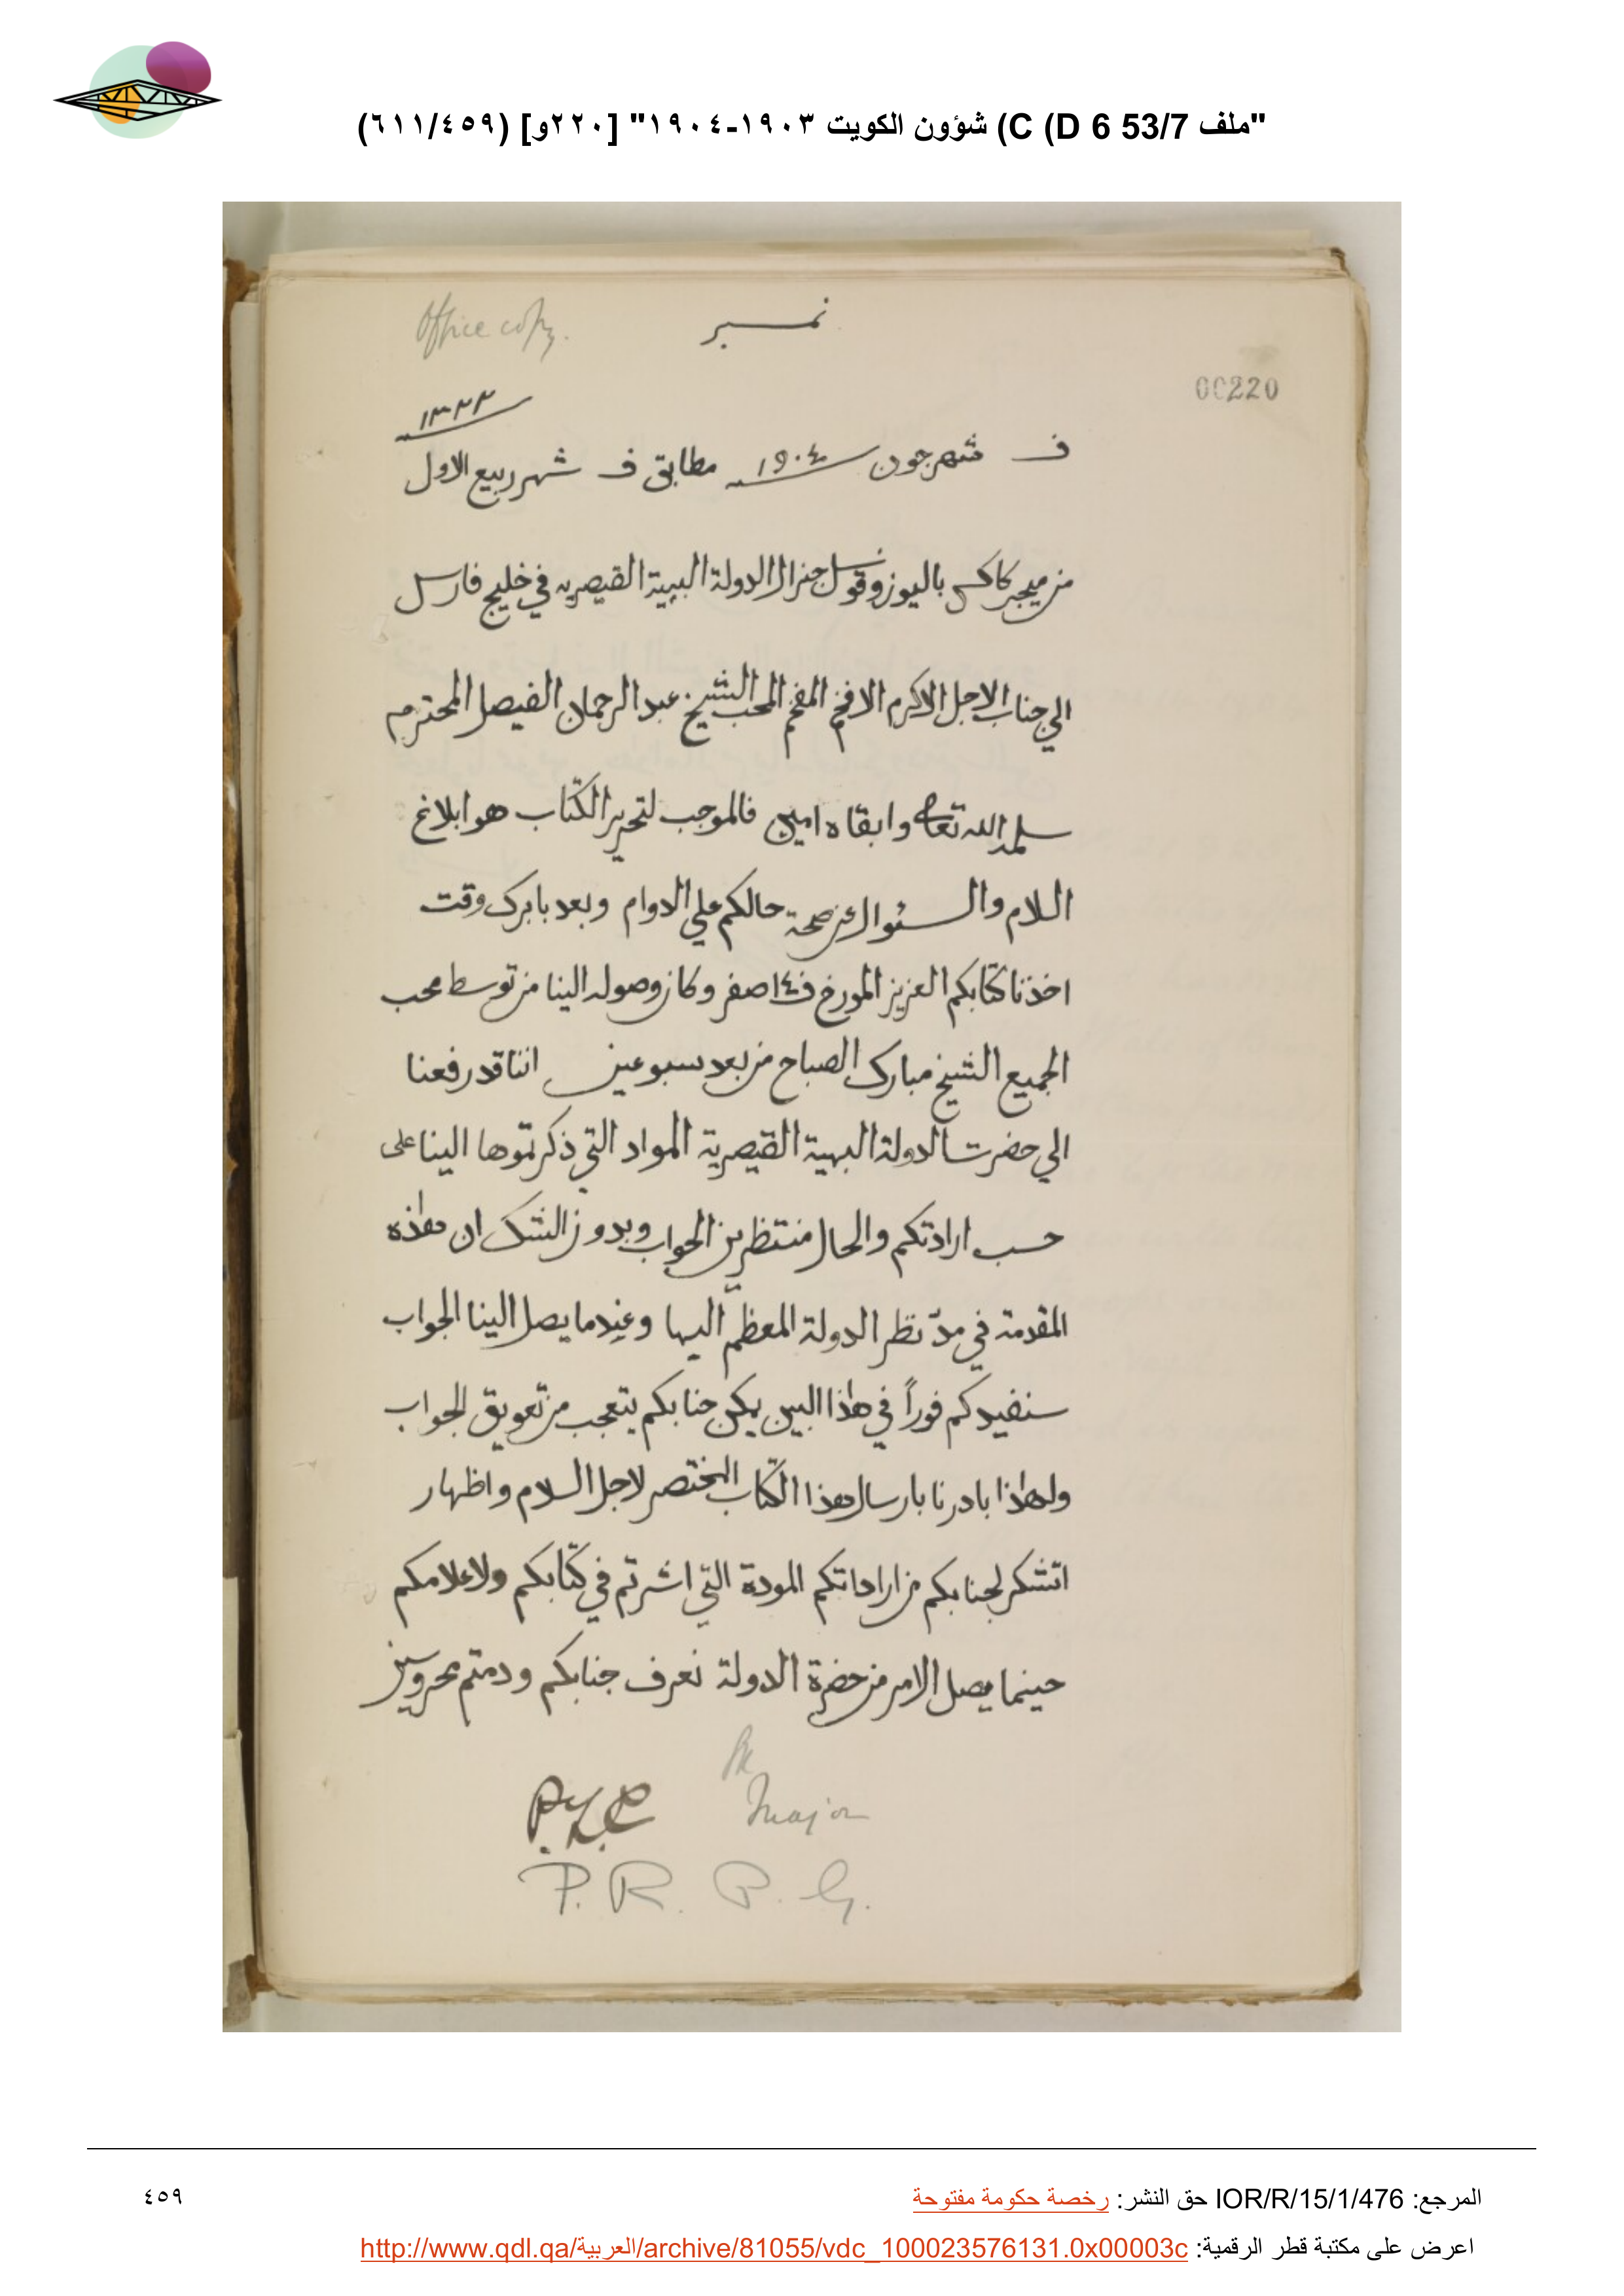 "ملف 53/7 C (D 6) شؤون الكويت ١٩٠٣-١٩٠٤" [٢٢٠و] (٤٥٩/٦١١)
Office copy.
نمبر
00220
١٣٢٢
ف شهر جون ١٩٠٤ مطابق ف شهر ربيع الاول
من ميجر كاكس باليوز وقونسل جنرال الدولة البهية القيصريه في خليج فارس
الي جناب الاجل الاكرم الافخم المفخم المحب الشيخ عبد الرحمان الفيصل المحترم
سلمه الله تعالى وابقاه امين فالموجب لتحرير الكتاب هو ابلاغ
السلام والسئوال عن صحة حالكم علي الدوام وبعد بابرك وقت
اخذنا كتابكم العزيز المورخ ف ١٤ صفر وكان وصوله الينا من توسط محب
الجميع الشيخ مبارك الصباح من بعد سبوعين اننا قد رفعنا
الي حضرت الدولة البهية القيصرية المواد التي ذكرتموها الينا على
حسب ارادتكم والحال منتظرين الجواب وبدون الشك ان هذه
المقدمة في مدّ نظر الدولة المعظم اليها وعندما يصل الينا الجواب
سنفيدكم فوراً في هذا البين يمكن جنابكم يتعجب من تعويق الجواب
ولهذا بادرنا بارسال هذا الكتاب المختصر لاجل السلام واظهار
اتشكر لجنابكم من اراداتكم المودة التي اشرتم في كتابكم ولاعلامكم
حينما يصل الامر من حضرة الدولة نعرف جنابكم ودمتم محروسين
P.Z.C
Major
P. R. P. G.
المرجع: IOR/R/15/1/476 حق النشر: رخصة حكومة مفتوحة
٤٥٩
اعرض على مكتبة قطر الرقمية: http://www.qdl.qa/العربية/archive/81055/vdc_100023576131.0x00003c